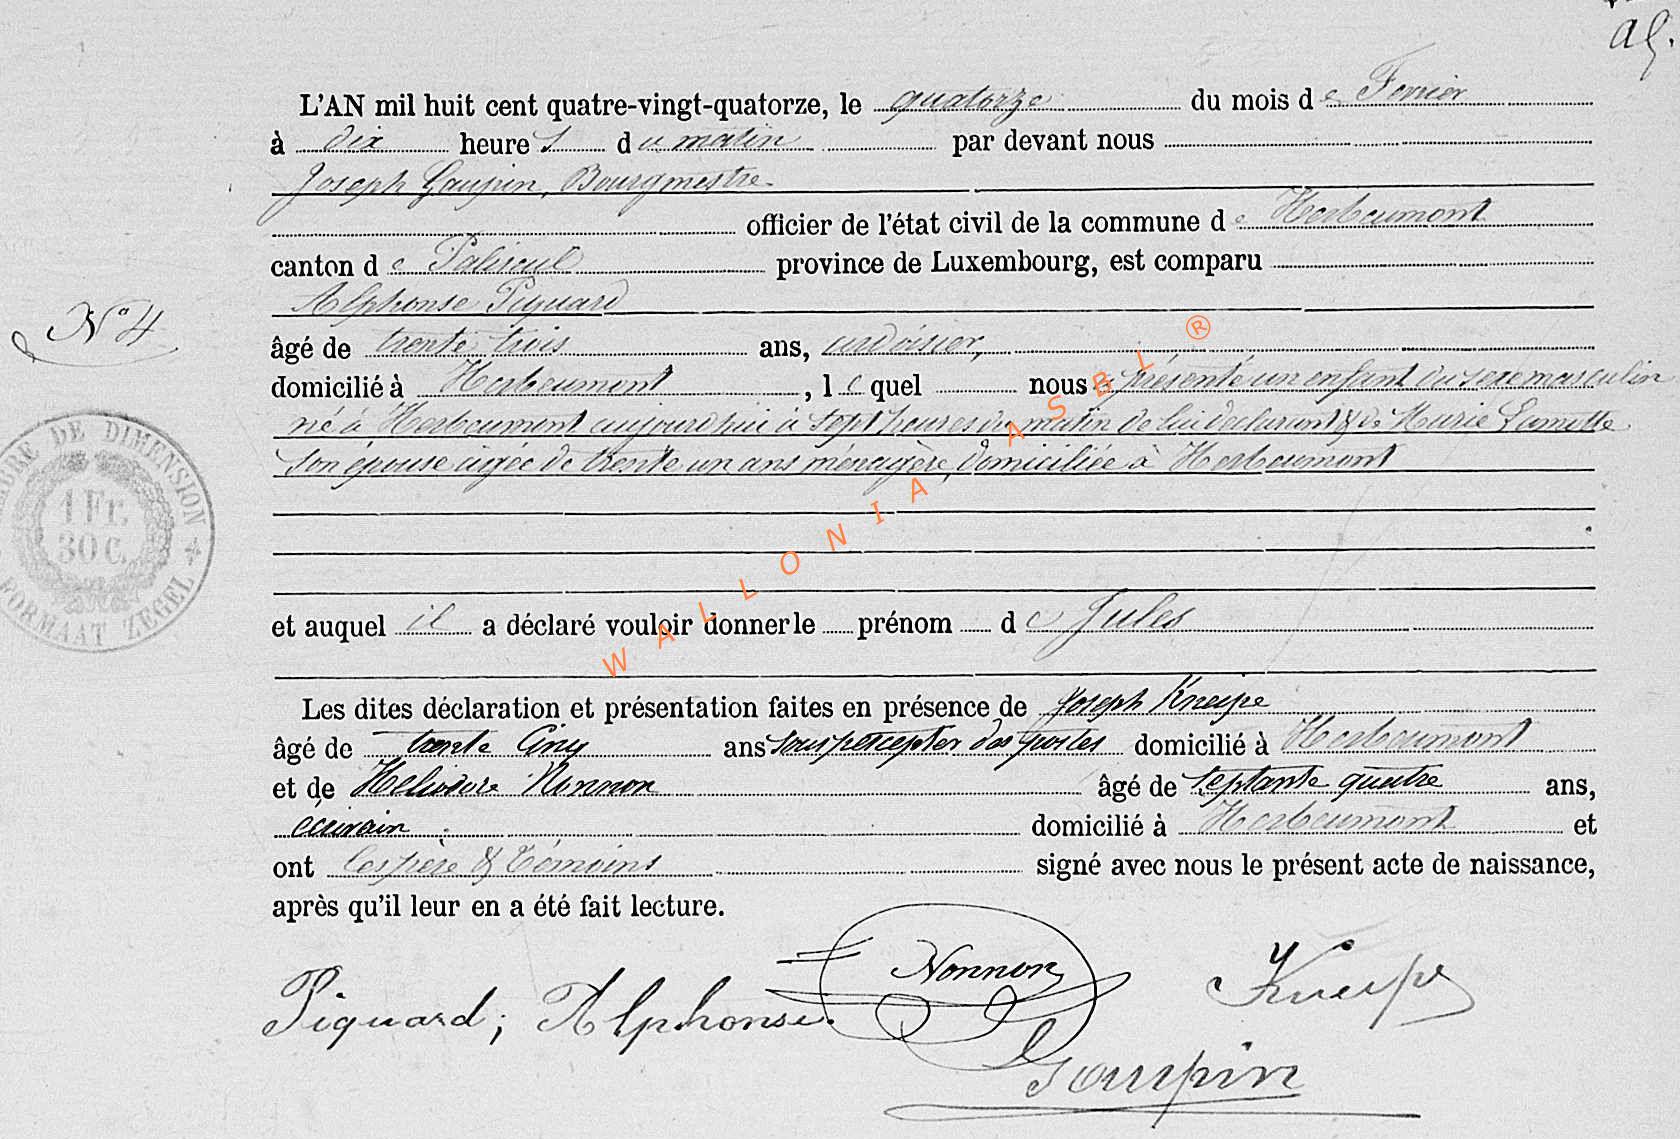 al.
L'AN mil huit cent quatre-vingt-quatorze, le quatorze du mois de Fevrier
à dix heures du matin par devant nous
Joseph Goupin, Bourgmestre
officier de l'état civil de la commune de Herbeumont
canton de Paliseul province de Luxembourg, est comparu
Alphonse Piquard
N° 4
âgé de trente trois ans, ardoisier,
domicilié à Herbeumont, lequel nous a présenté un enfant du sexe masculin
né à Herbeumont aujourd'hui à sept heures du matin de lui déclarant & de Marie Lamotte
son épouse âgée de trente un ans ménagère, domiciliée à Herbeumont
TIMBRE DE DIMENSION
1 Fr.
30 C.
FORMAAT ZEGEL
et auquel il a déclaré vouloir donner le prénom de Jules
Les dites déclaration et présentation faites en présence de Joseph Kneipe
âgé de trente cinq ans sous percepter des postes domicilié à Herbeumont
et de Heliodore Nonnon âgé de septante quatre ans,
écrivain domicilié à Herbeumont et
ont les père & témoins signé avec nous le présent acte de naissance,
après qu'il leur en a été fait lecture.
Piquard, Alphonse.
Nonnon
Kneipe
Goupin
WALLONIA ASBL ®